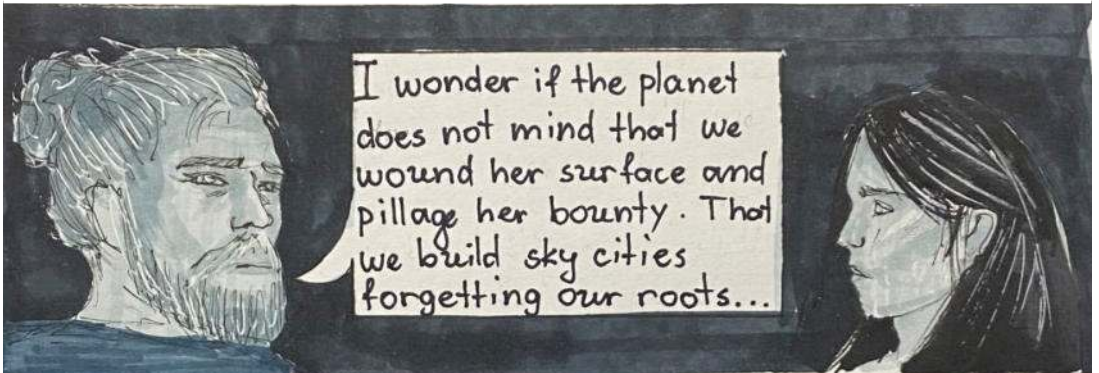 I wonder if the planet
does not mind that we
wound her surface and
pillage her bounty. That
we build sky cities
forgetting our roots...